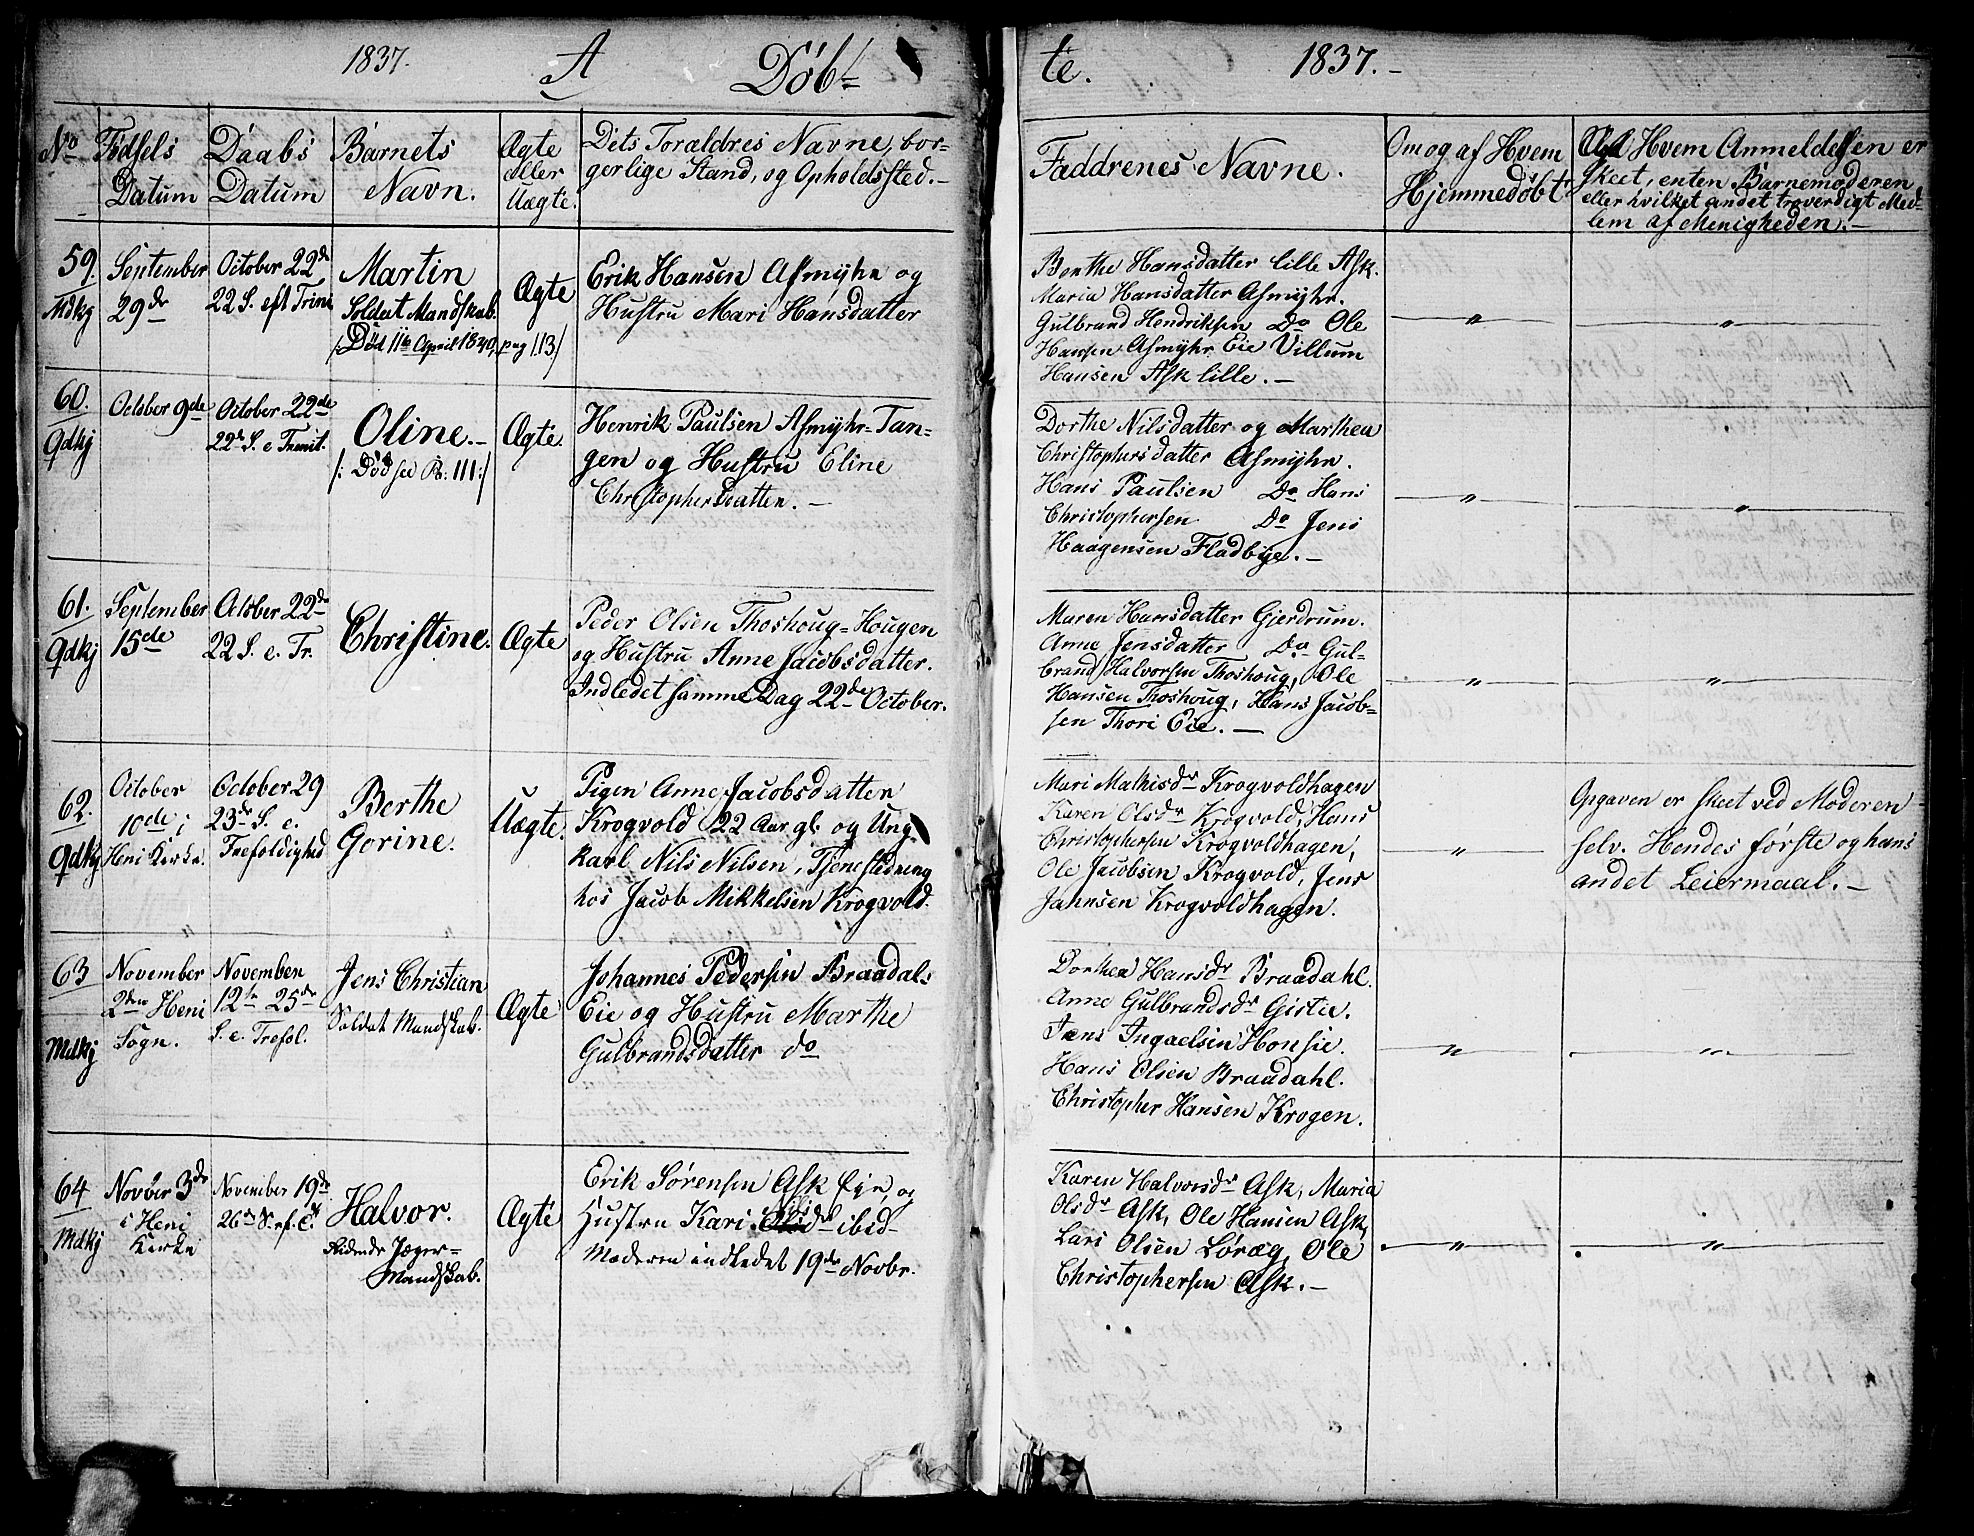 1837. A Døb-
No Fødsels Datum
Daabs Datum
Barnets Navn.
Ægte eller Uægte.
Dets Forældres Navne, bor-
gerlige Stand, og Opholdssted.-
59.
Mdkj
September
29de
October 22de
22 S. eft Trini
Martin
Soldat Mandskab.
/: Død 11te April 1840, pag 113/
Ægte
Erik Hansen Asmyhr og
Hustru Mari Hansdatter
60.
Qdkj
October 9de
October 22de
22de S. e Trinit.
Oline.-
/: Død see P: 111:/
Ægte
Henrik Paulsen Asmyhr-Tan=
gen og Hustru Eline
Christophersdatter.-
61.
Qdkj
September
15de
October 22de
22 S. e. Tr.
Christine.
Ægte
Peder Olsen Thoshoug=Hougen
og Hustru Anne Jacobsdatter.
Indledet samme Dag 22de October.
62.
Qdkj
October
10de i
Heni Kirke.
October 29
23de S. e.
Trefoldighed
Berthe
Gorine.
Uægte.
Pigen Anne Jacobsdatter
Krogvold 22 Aar gl. og Ung
karl Nils Nilsen, Tjenestedreng
hos Jacob Mikkelsen Krogvold.
63
Mdkj
November
2den Heni
Sogn.
November
12te 25de
S. e. Trefol.
Jens Christian
Soldat Mandskab.
Ægte
Johannes Pedersen Braadals
Eie og Hustru Marthe
Gulbrandsdatter do
64
Mdkj
Novber 3de
i Heni
Kirke
November 19de
26de S. ef. T.
Halvor.
Ridende Jæger=
Mandskab.
Ægte
Erik Sørensen Ask Eje, og
Hustru Kari Nilsdr ibid-
Moderen indledet 19de Novbr.
te. 1837.-
Faddrenes Navne.
Om og af Hvem
Hjemmedøbt
Ved Hvem Anmeldelsen er
skeet, enten Barnemoderen
eller hvilket andet troverdigt Med-
lem af Menigheden.-
Berthe Hansdatter lille Ask.
Maria Hansdatter Asmyhr.
Gulbrand Hendriksen Do Ole
Hansen Asmyhr Eie Villum
Hansen Ask lille.-
" "
Dorthe Nilsdatter og Marthea
Christophersdatter Asmyhr.
Hans Paulsen Do Hans
Christophersen Do Jens
Haagensen Fladbye.-
" "
Maren Hansdatter Gjerdrum.
Anne Jensdatter Do Gul-
brand Halvorsen Thoshoug, Ole
Hansen Thoshoug, Hans Jacob=
sen Thori Eie.-
" "
Mari Mathisdr Krogvoldhagen
Karen Olsdr Krogvold, Hans
Christophersen Krogvoldhagen,
Ole Jacobsen Krogvold, Jens
Jahnsen Krogvoldhagen.
"
Opgaven er skeet ved Moderen
selv. Hendes første og hans
andet Leiermaal.-
Dorthea Hansdr Braadahl.
Anne Gulbrandsdr Gistie.
Jens Ingaelsen Honsie.
Hans Olsen Braadahl.
Christopher Hansen Krogen.
" "
Karen Halvorsdr Ask, Maria
Olsdr Ask, Ole Hansen Ask,
Lars Olsen Løræg, Ole
Christophersen Ask.-
" "